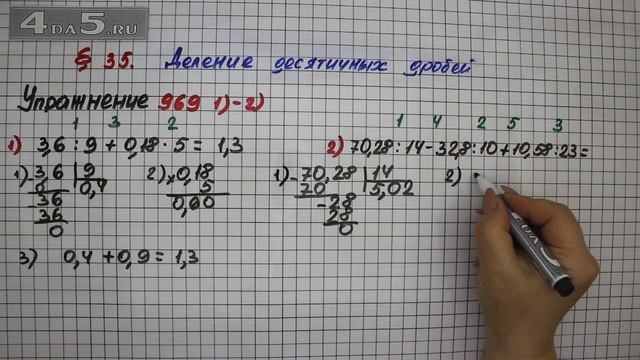 4DA5.RU
§ 35. Деление десятичных дробей
Упражнение 969 1)-2)
1 3 2
1) 3,6 : 9 + 0,18 · 5 = 1,3
1) 3,6 9
0 0,4
36
36
0
2) × 0,18
5
0,90
3) 0,4 + 0,9 = 1,3
1 4 2 5 3
2) 70,28 : 14 - 32,8 : 10 + 10,58 : 23 =
1) - 70,28 14
70 5,02
- 28
28
0
2)